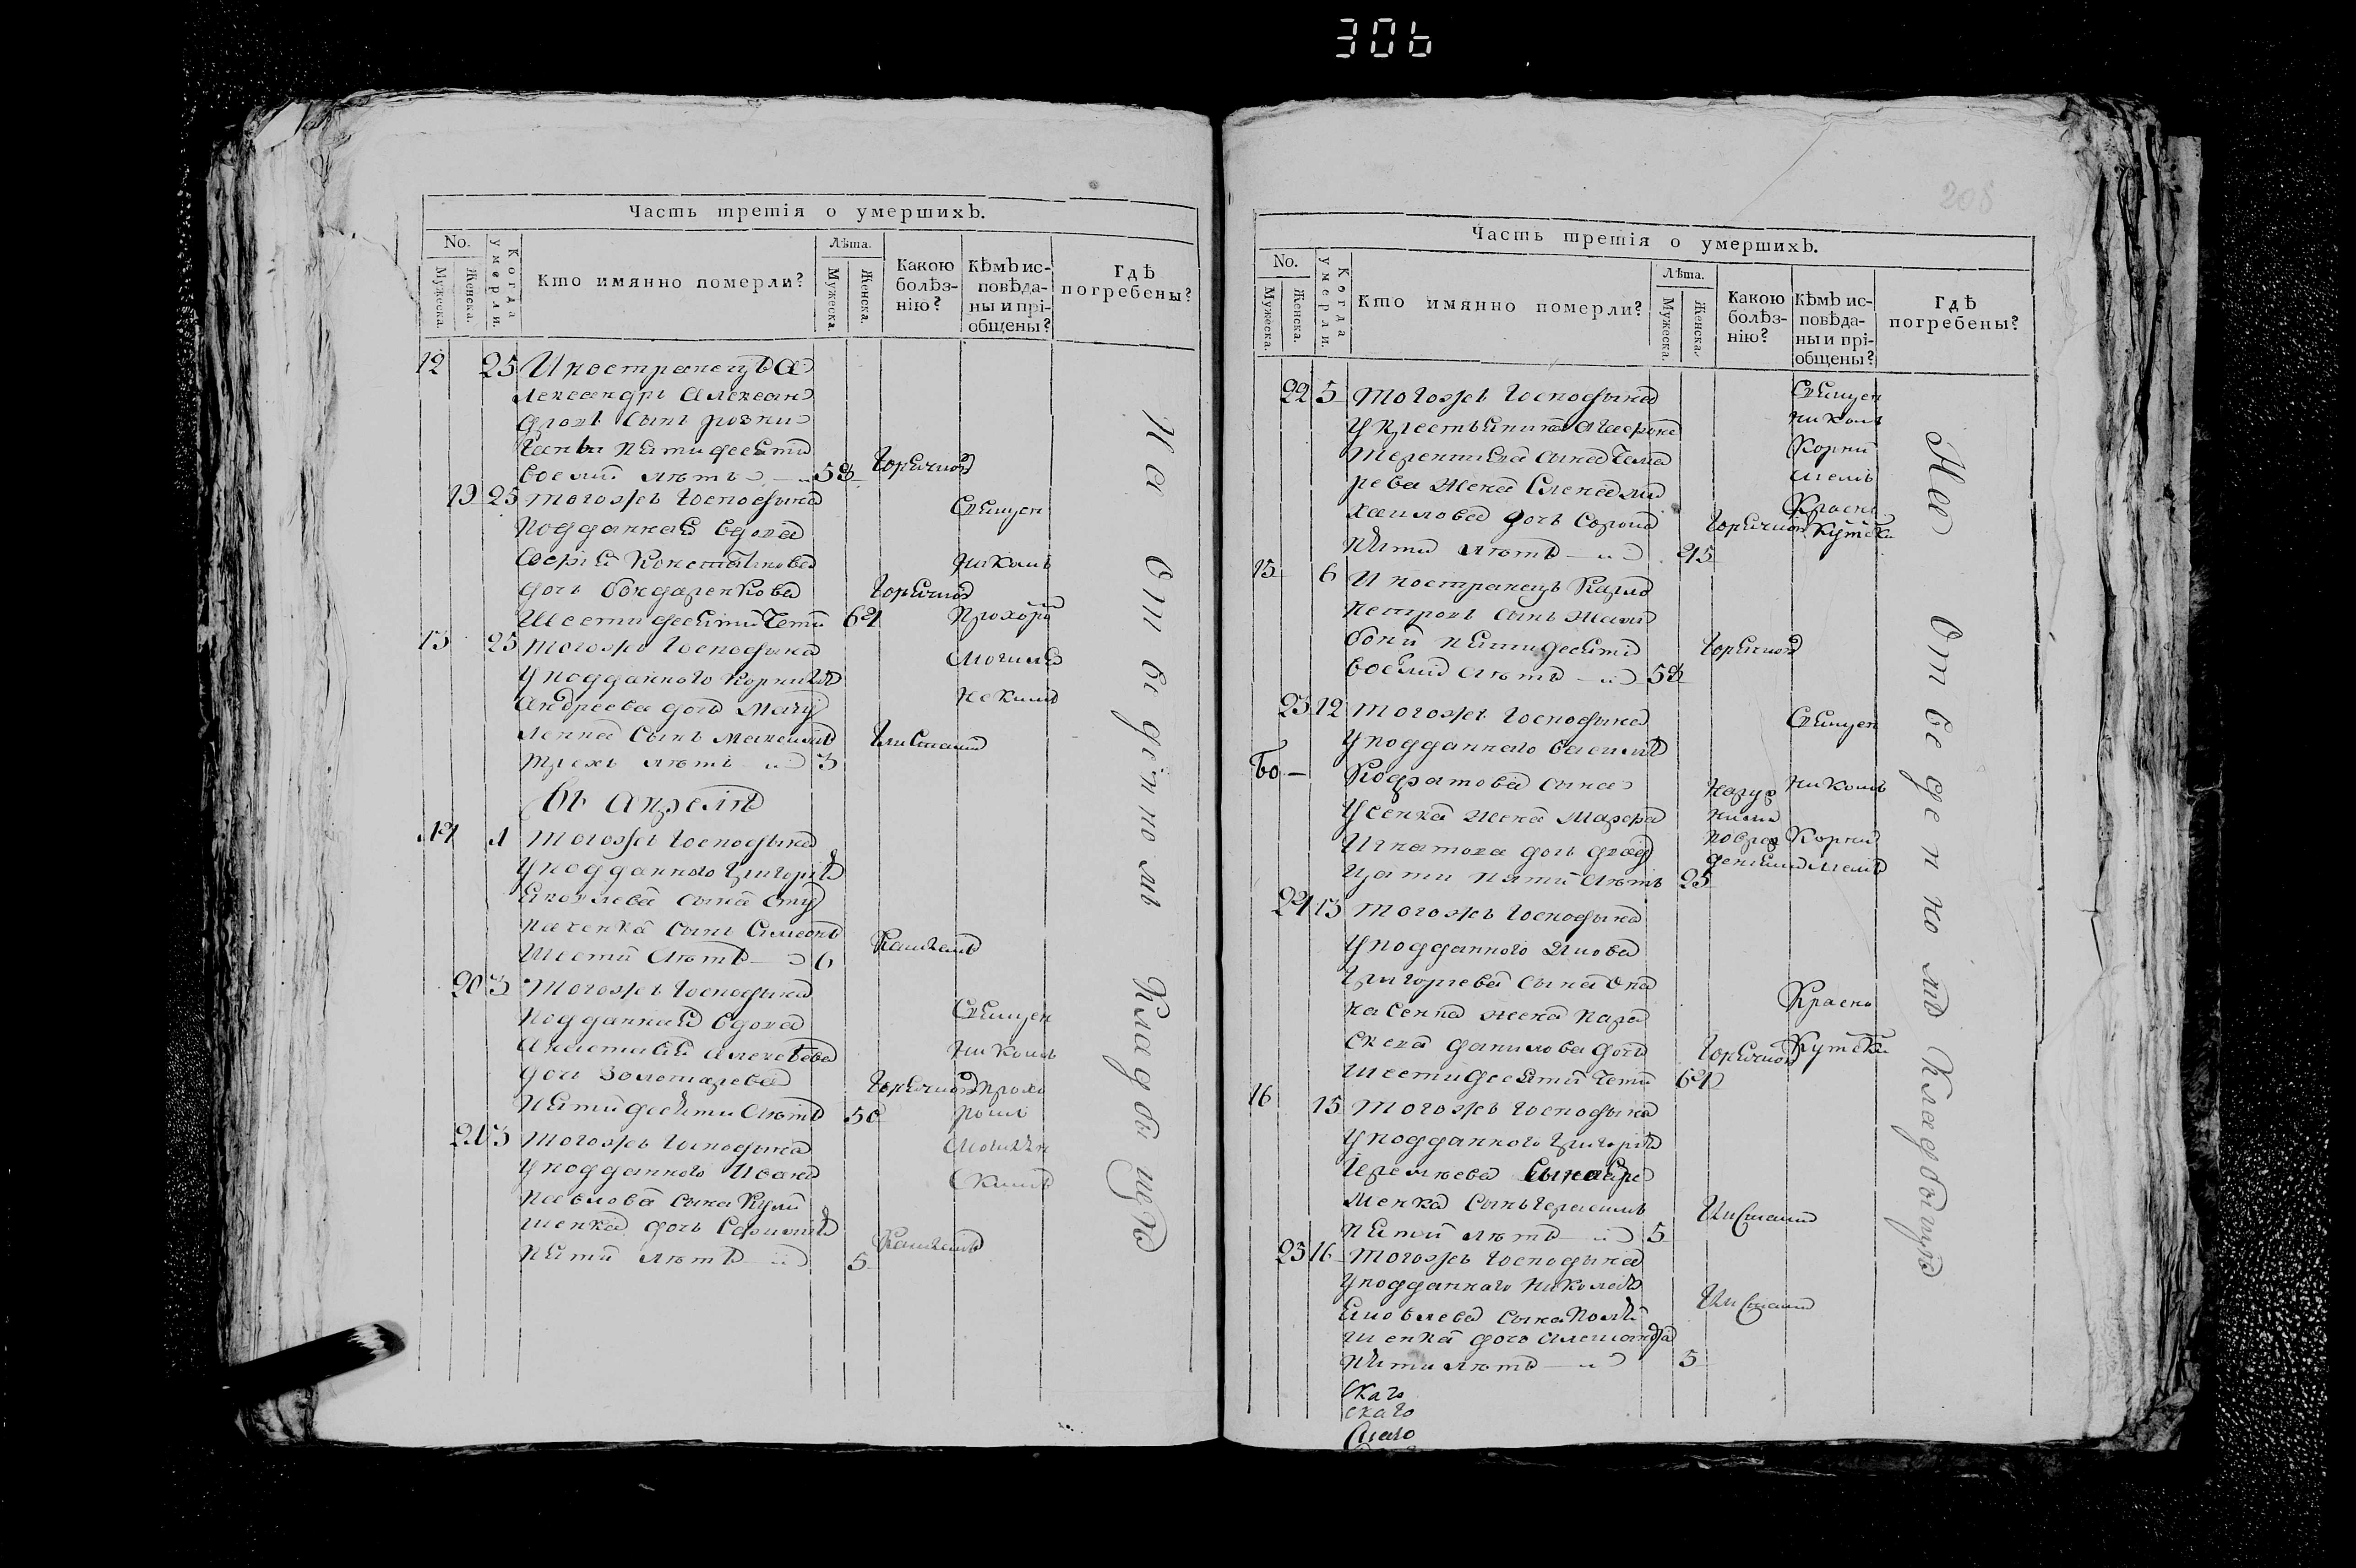 306
Часть третія о умершихъ.
No.
Мужеска.
Женска.
Когда умерли.
Кто имянно померли?
Лѣта.
Мужеска.
Женска.
Какою болѣз-
нію?
Кѣмъ ис-
повѣда-
ны и прі-
общены?
Гдѣ
погребены?
12 25 Иностранецъ а
лександръ Александ
ровъ сынъ
пятидесяти
восми лѣтъ 58 горячкой
19 25 тогожъ господина
подданная вдова
Софія Константинова
дочь Бондаренкова
шестидесяти четы 64 горячкой
Священ
никомъ
Прохоро
Могиле
13 25 тогожъ господина
у подданного Корнилія
Андреева
сынъ Максимъ
трехъ лѣтъ 3
въ Апрелѣ
14 1 тогожъ господина
у подданного Григорія
Яковлева сына Сту
паченка сынъ Симеонъ
шести лѣтъ 6 кашлемъ
20 3 тогожъ господина
подданная вдова
Анастасія Алексѣева
дочь Золотарева
пятидесяти лѣтъ 50 горячкой
Священ
никомъ
Прохо
ромъ
21 3 тогожъ господина
у подданного Ивана
Павлова сына Кули
шенка дочь Евфимія
пяти лѣтъ 5 кашлемъ
На отведенномъ кладбищѣ
208
Часть третія о умершихъ.
No.
Мужеска.
Женска.
Когда умерли.
Кто имянно померли?
Лѣта.
Мужеска.
Женска.
Какою болѣз-
нію?
Кѣмъ ис-
повѣда-
ны и прі-
общены?
Гдѣ
погребены?
22 5 тогожъ господина
у крестьянина
Терентиева сына
жена Елена ми
хаилова дочь сорока
пяти лѣтъ 45 горячкой
Священ
никомъ
Корни
лиемъ
Красно
кутски
15 6 Иностранецъ Карло
Петровъ сынъ
пятидесяти
восми лѣтъ 58 горячкой
23 12 тогожъ господина
у подданного Василія
Кодратова сына
Усенка жена Марфа
Игнатова дочь двад
цати пяти лѣтъ 25
Священ
никомъ
Корни
лиемъ
24 13 тогожъ господина
у подданного Якова
Григориева сына Опа
насенка жена Пара
скева Данилова дочь
шестидесяти четы 64 горячкой
Красно
кутски
16 15 тогожъ господина
у подданного Григорія
Еремѣева сына Ере
менка сынъ Герасимъ
пяти лѣтъ 5
25 16 тогожъ господина
у подданного Николая
Яковлева сына
шенка дочь Александра
пяти лѣтъ 5
скаго
скаго
На отведенномъ кладбищѣ